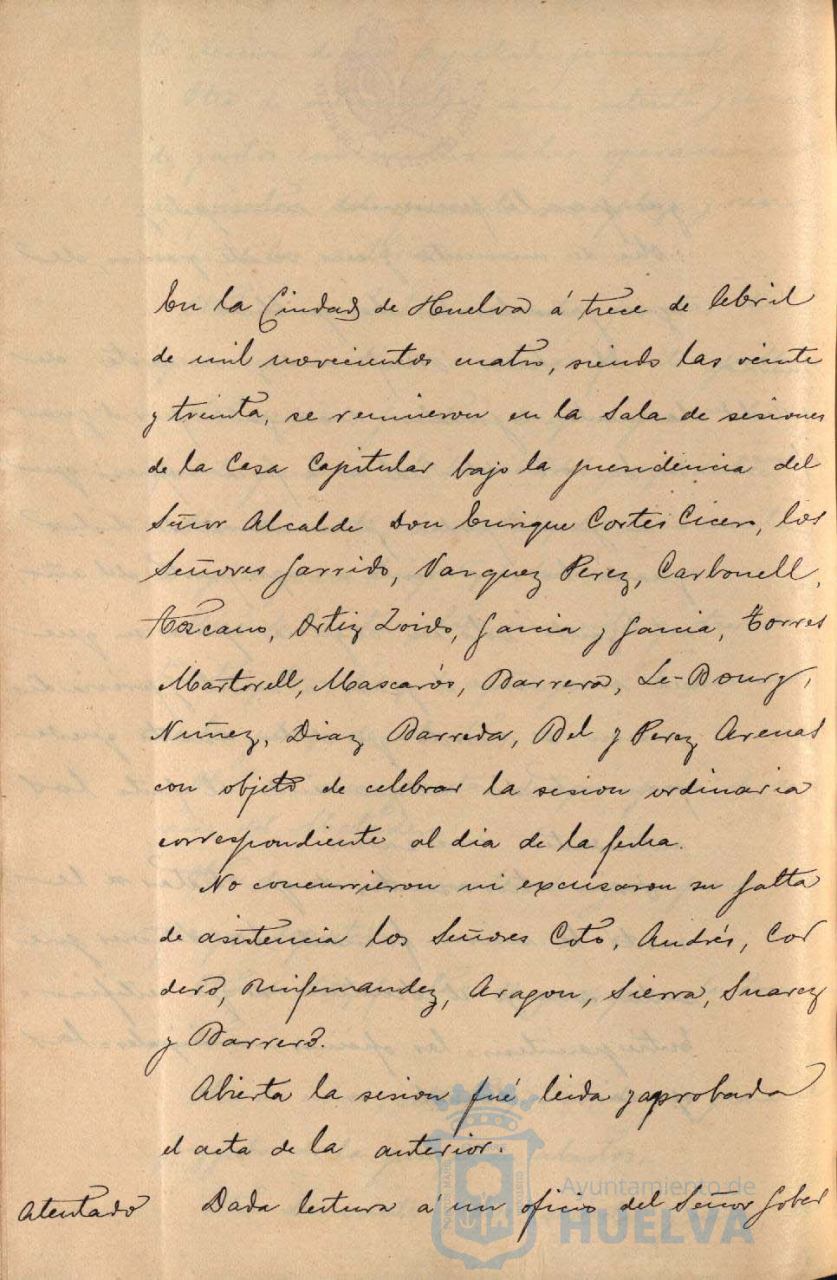 En la Ciudad de Huelva á trece de Abril
de mil novecientos cuatro, siendo las veinte
y treinta, se reunieron en la Sala de sesiones
de la Casa Capitular bajo la presidencia del
Señor Alcalde Don Enrique Cortés Cicero, los
Señores Garrido, Vazquez Perez, Carbonell,
Toscano, Ortiz Zoido, Garcia y Garcia, Torres
Martorell, Mascarós, Barrera, Le-Bourg,
Nuñez, Diaz Barreda, Bel y Perez Arenas
con objeto de celebrar la sesion ordinaria
correspondiente al dia de la fecha.
No concurrieron ni excusaron su falta
de asistencia los Señores Coto, Andrés, Cor
dero, Ruifernandez, Aragon, Sierra, Suarez
y Barrero.
Abierta la sesion fué leida y aprobada
el acta de la anterior.
Atentado
Dada lectura á un oficio del Señor Gober
Ayuntamiento de
HUELVA